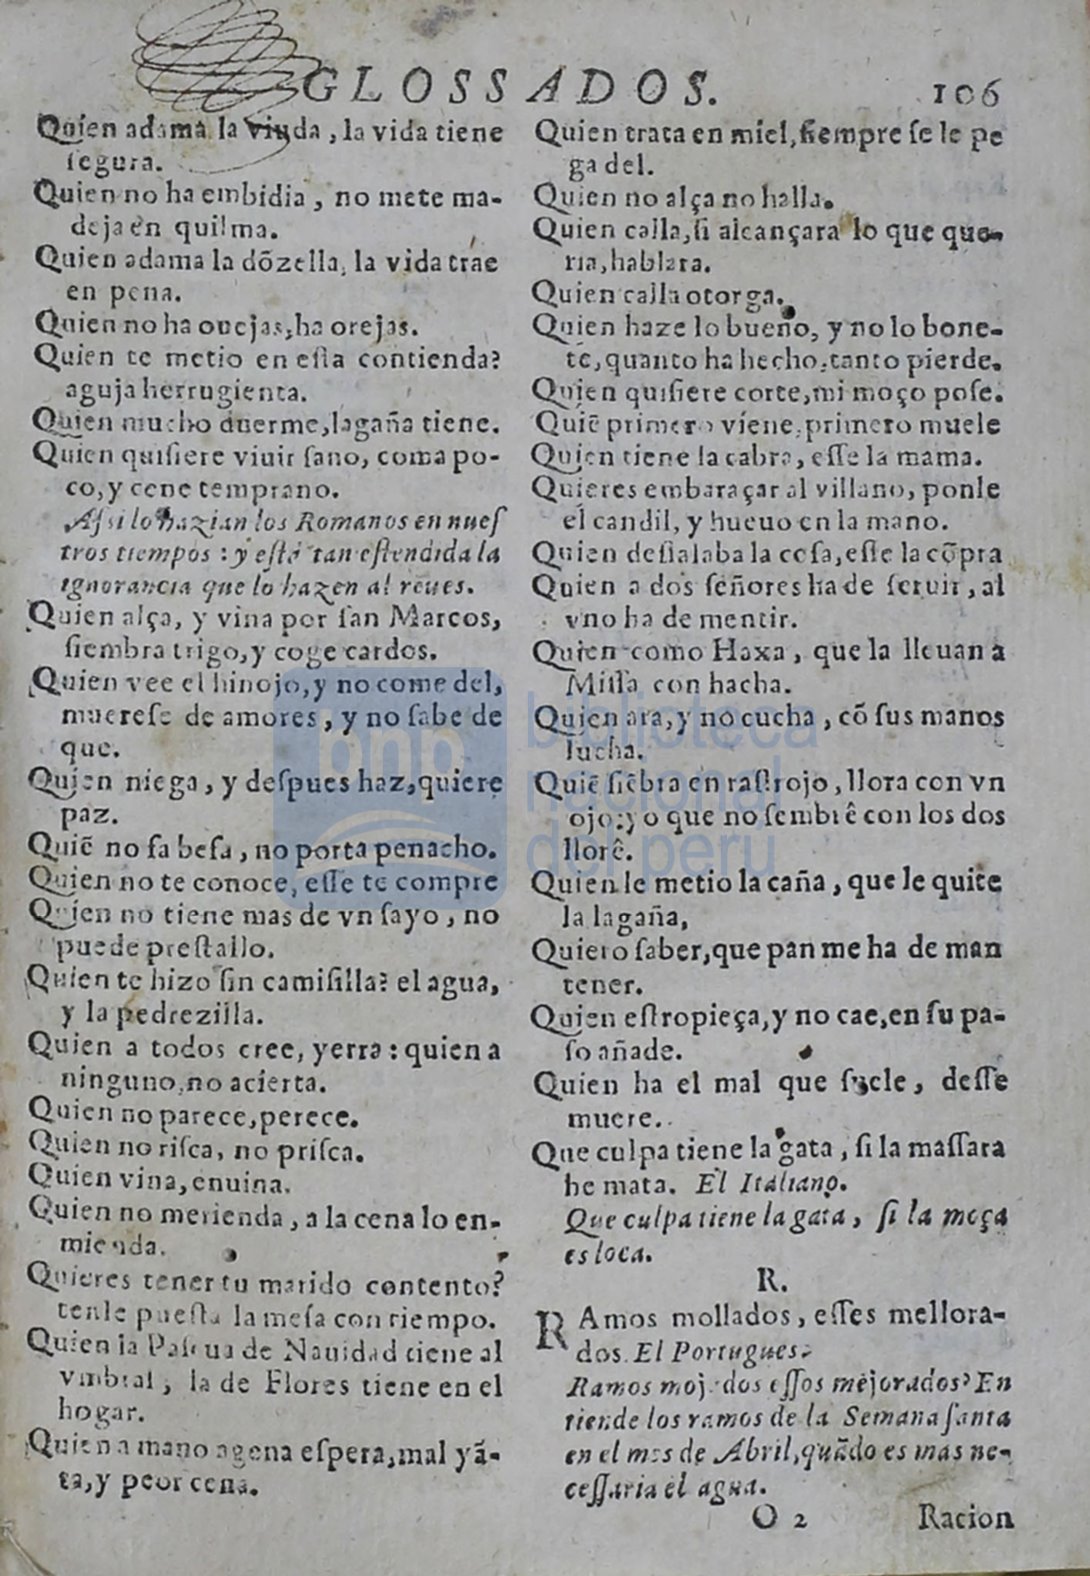 GLOSSADOS. 106
Quien adama la viuda, la vida tiene
segura.
Quien no ha embidia, no mete ma-
deja en quilma.
Quien adama la dõzella, la vida trae
en pena.
Quien no ha ouejas, ha orejas.
Quien te metio en esta contienda?
aguja herrugienta.
Quien mucho duerme, lagaña tiene.
Quien quisiere viuir sano, coma po-
co, y cene temprano.
Assi lo hazian los Romanos en nues
tros tiempos: y està tan estendida la
ignorancia que lo hazen al reues.
Quien alça, y vina por san Marcos,
siembra trigo, y coge cardos.
Quien vee el hinojo, y no come del,
muerese de amores, y no sabe de
que.
Quien niega, y despues haz, quiere
paz.
Quiẽ no fa besa, no porta penacho.
Quien no te conoce, esse te compre
Quien no tiene mas de vn sayo, no
puede prestallo.
Quien te hizo sin camisilla? el agua,
y la pedrezilla.
Quien a todos cree, yerra: quien a
ninguno, no acierta.
Quien no parece, perece.
Quien no risca, no prisca.
Quien vina, enuina.
Quien no merienda, a la cena lo en-
mienda.
Quieres tener tu marido contento?
tenle puesta la mesa con tiempo.
Quien la Pascua de Nauidad tiene al
vmbral, la de Flores tiene en el
hogar.
Quien a mano agena espera, mal yã-
ta, y peor cena.
Quien trata en miel, siempre se le pe
ga del.
Quien no alça no halla.
Quien calla, si alcançara lo que que-
ria, hablara.
Quien calla otorga.
Quien haze lo bueno, y no lo bone-
te, quanto ha hecho, tanto pierde.
Quien quisiere corte, mi moço pose.
Quiẽ primero viene, primero muele
Quien tiene la cabra, esse la mama.
Quieres embaraçar al villano, ponle
el candil, y hueuo en la mano.
Quien desalaba la cosa, esse la cõpra
Quien a dos señores ha de seruir, al
vno ha de mentir.
Quien como Haxa, que la lleuan a
Missa con hacha.
Quien ara, y no cucha, cõ sus manos
lucha.
Quiẽ siẽbra en rastrojo, llora con vn
ojo: yo que no sembrê con los dos
llorê.
Quien le metio la caña, que le quite
la lagaña,
Quiero saber, que pan me ha de man
tener.
Quien estropieça, y no cae, en su pa-
so añade.
Quien ha el mal que suele, desse
muere.
Que culpa tiene la gata, si la massara
he mata. El Italiano.
Que culpa tiene la gata, si la moça
es loca.
R.
RAmos mollados, esses mellora-
dos. El Portugues.
Ramos mojados essos mejorados? En
tiende los ramos de la Semana santa
en el mes de Abril, quãdo es mas ne-
cessaria el agua.
O 2 Racion
bnp biblioteca
nacional
del perú